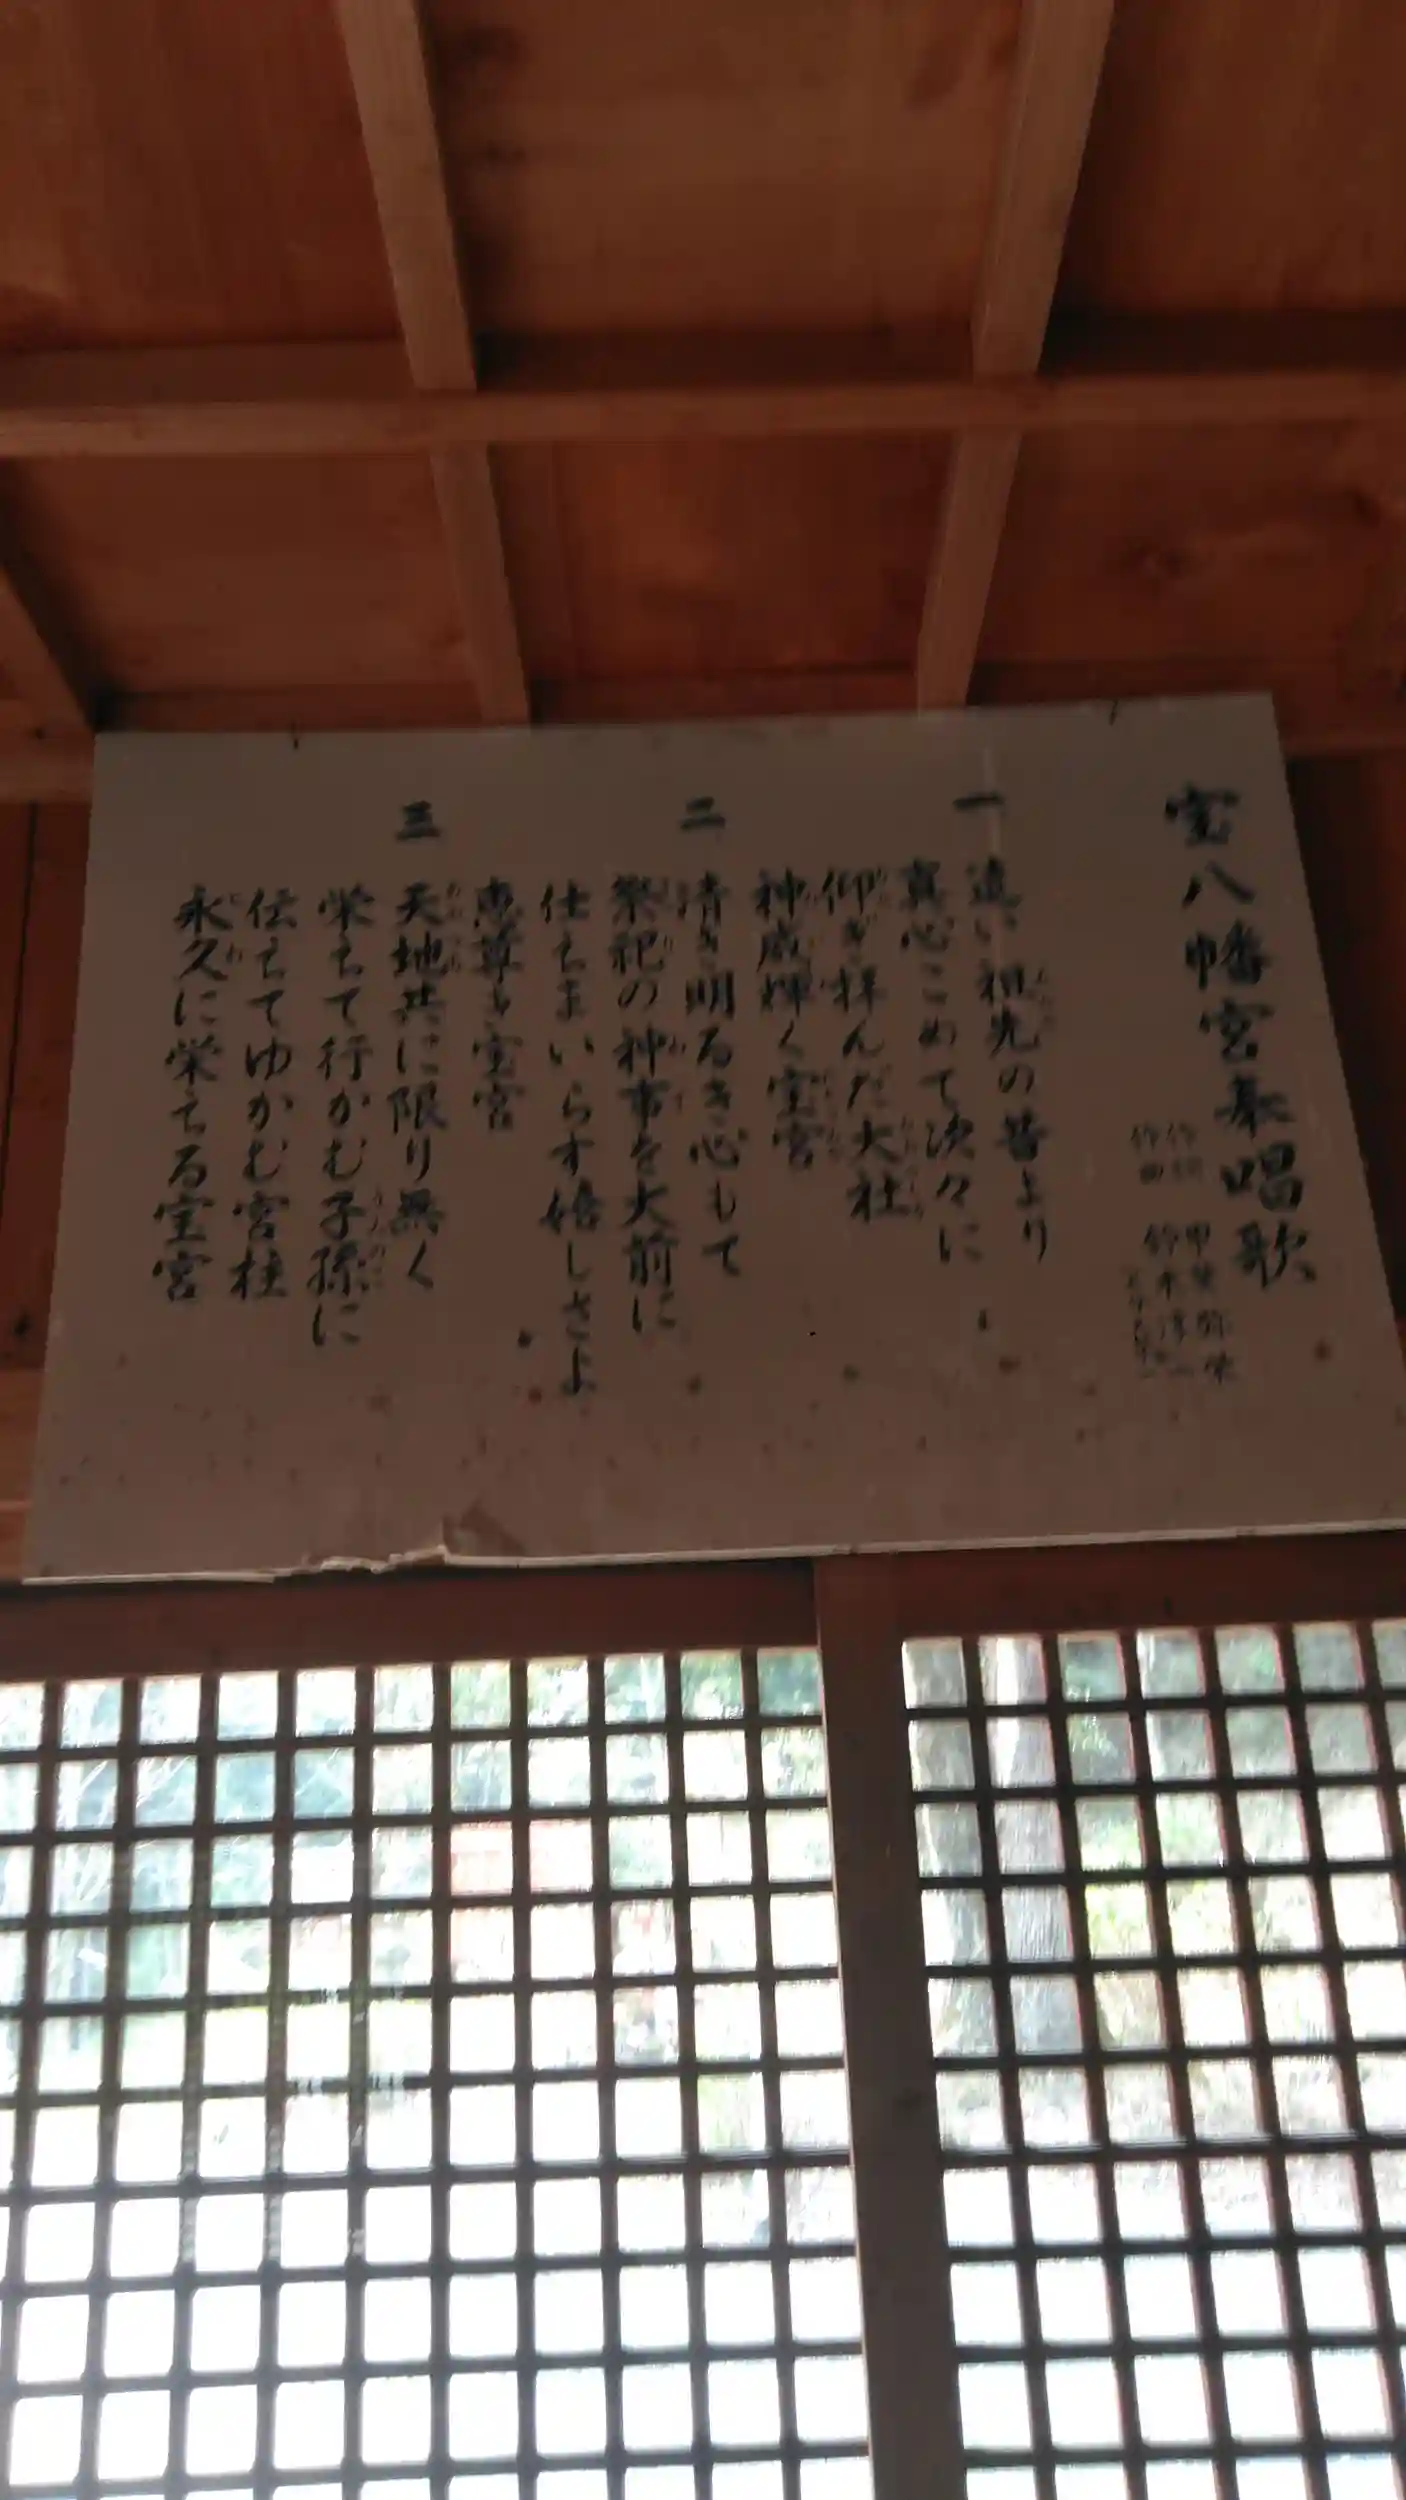 宝八幡宮奉唱歌
作詞 甲斐 弥栄
作曲 鈴木 淳一
一 遠い祖先の昔より
真心こめて次々に
仰ぎ拝んだ大社
神威輝く宝宮
二 清き明るき心もて
祭祀の神事を大前に
仕えまいらす嬉しさよ
恵尊き宝宮
三 天地共に限り無く
栄えて行かむ子孫に
伝えてゆかむ宮柱
永久に栄える宝宮